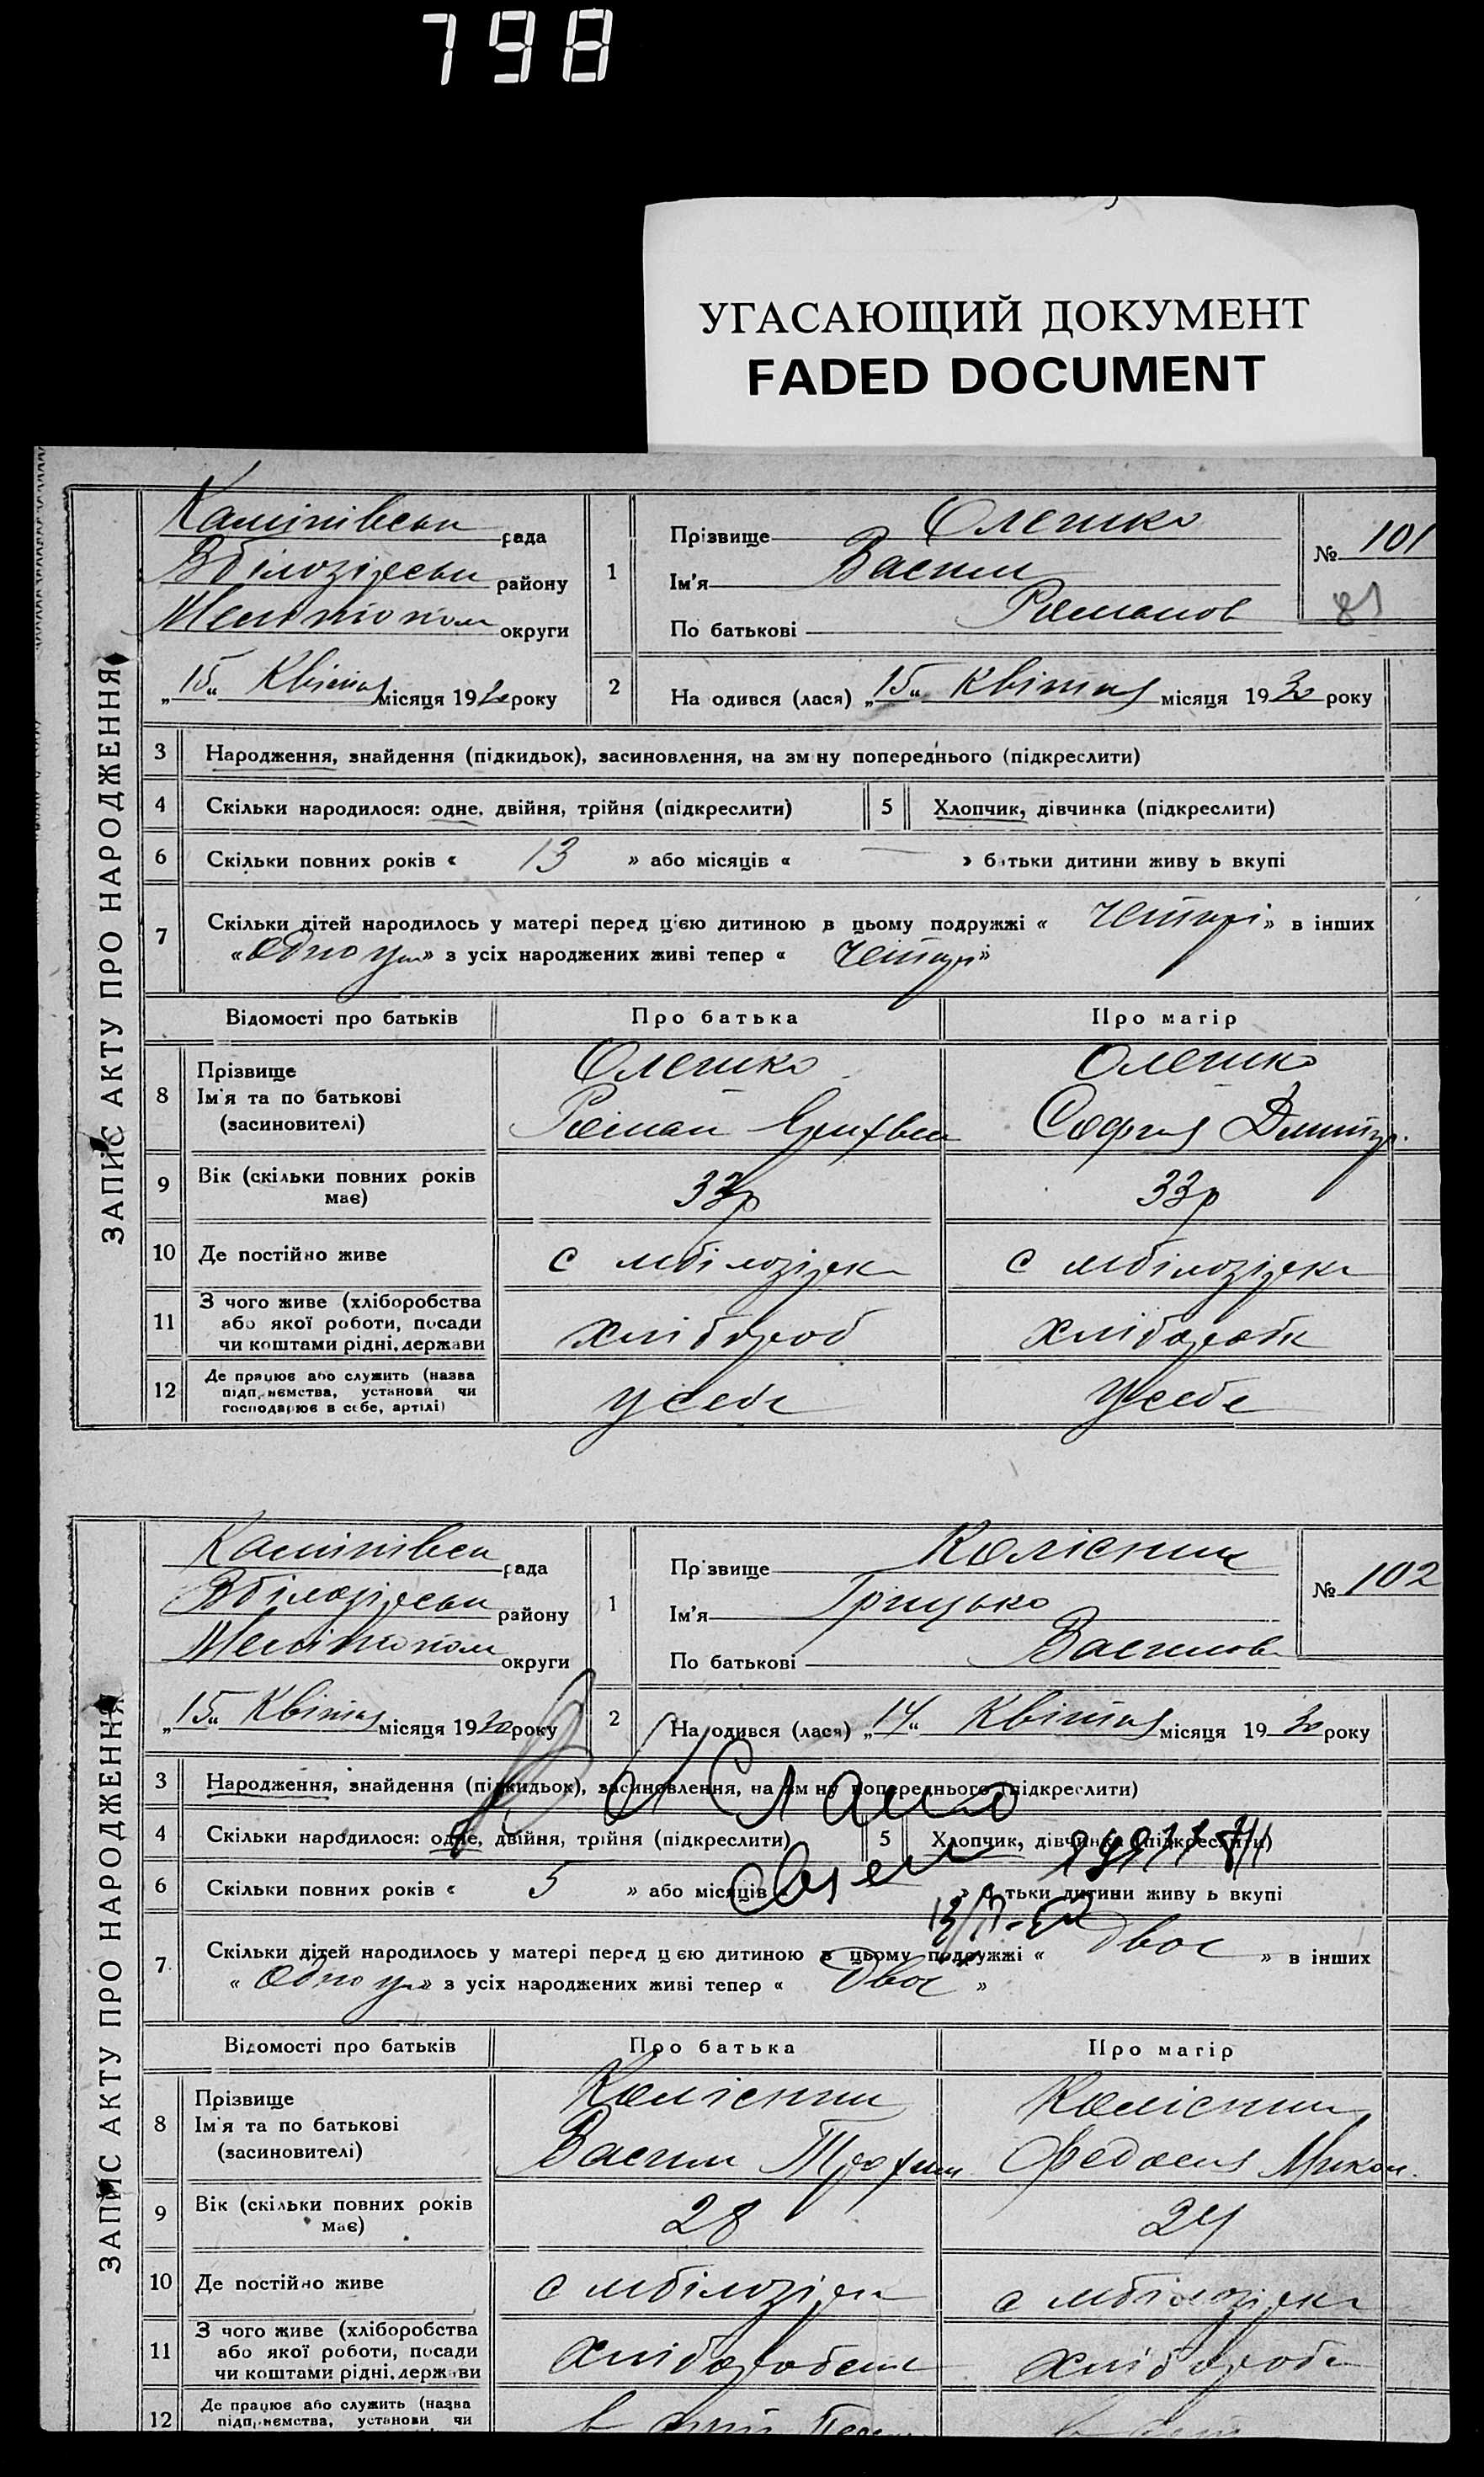 798
УГАСАЮЩИЙ ДОКУМЕНТ
FADED DOCUMENT
ЗАПИС АКТУ ПРО НАРОДЖЕННЯ
рада
району
Мелітопол округи
„15“ Квітня місяця 1930 року
1 Прізвище Олешко
Ім'я Васил
По батькові Романов
№ 101
81
2 На одився (лася) „15“ Квітня місяця 1930 року
3 Народження, знайдення (підкидьок), засиновлення, на зм ну попереднього (підкреслити)
4 Скільки народилося: одне, двійня, трійня (підкреслити) 5 Хлопчик, дівчинка (підкреслити)
6 Скільки повних років « 13 » або місяців « — » б тьки дитини живу ь вкупі
7 Скільки дітей народилось у матері перед ц єю дитиною в цьому подружжі « Четирі » в інших
» з усіх народжених живі тепер « Четирі »
Відомості про батьків Про батька Про матір
8 Прізвище Олешко Олешко
Ім'я та по батькові Роман Софія Димитр.
(засиновителі)
9 Вік (скільки повних років має) 33р 33р
10 Де постійно живе с мбілозірка с мбілозірка
11 З чого живе (хліборобства або якої роботи, посади чи коштами рідні, держави хлібороб хлібороби
12 Де працює або служить (назва підп, иємства, установи чи господарює в себе, артілі) у себе у себе
ЗАПИС АКТУ ПРО НАРОДЖЕННЯ
рада
району
Мелітопол округи
„15“ Квітня місяця 1930 року
1 Пр звище Колісник
Ім'я Грицько
По батькові Василов
№ 102
2 На одився (лася) „14“ Квітня місяця 1930 року
3 Народження, знайдення (підкидьок), засиновлення, на зм ну попереднього (підкреслити)
4 Скільки народилося: одне, двійня, трійня (підкреслити) 5 Хлопчик, дівчинка (підкреслити)
6 Скільки повних років « 5 » або місяців » б тьки дитини живу ь вкупі
7 Скільки дітей народилось у матері перед ц єю дитиною в цьому подружжі « Двоє » в інших
» з усіх народжених живі тепер « Двоє »
Відомості про батьків Про батька Про матір
8 Прізвище Колісник Колісник
Ім'я та по батькові Васил Трохим Федосія Микол.
(засиновителі)
9 Вік (скільки повних років має) 28 24
10 Де постійно живе с мбілозірка с мбілозірка
11 З чого живе (хліборобства або якої роботи, посади чи коштами рідні, держави
12 Де працює або служить (назва підп, иємства, установи чи